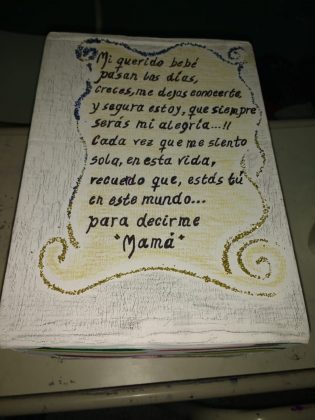 Mi querido bebé
pasan los días,
creces, me dejas conocerte
y segura estoy, que siempre
serás mi alegría...!!
Cada vez que me siento
sola, en esta vida,
recuerdo que, estás tú
en este mundo...
para decirme
"Mamá"